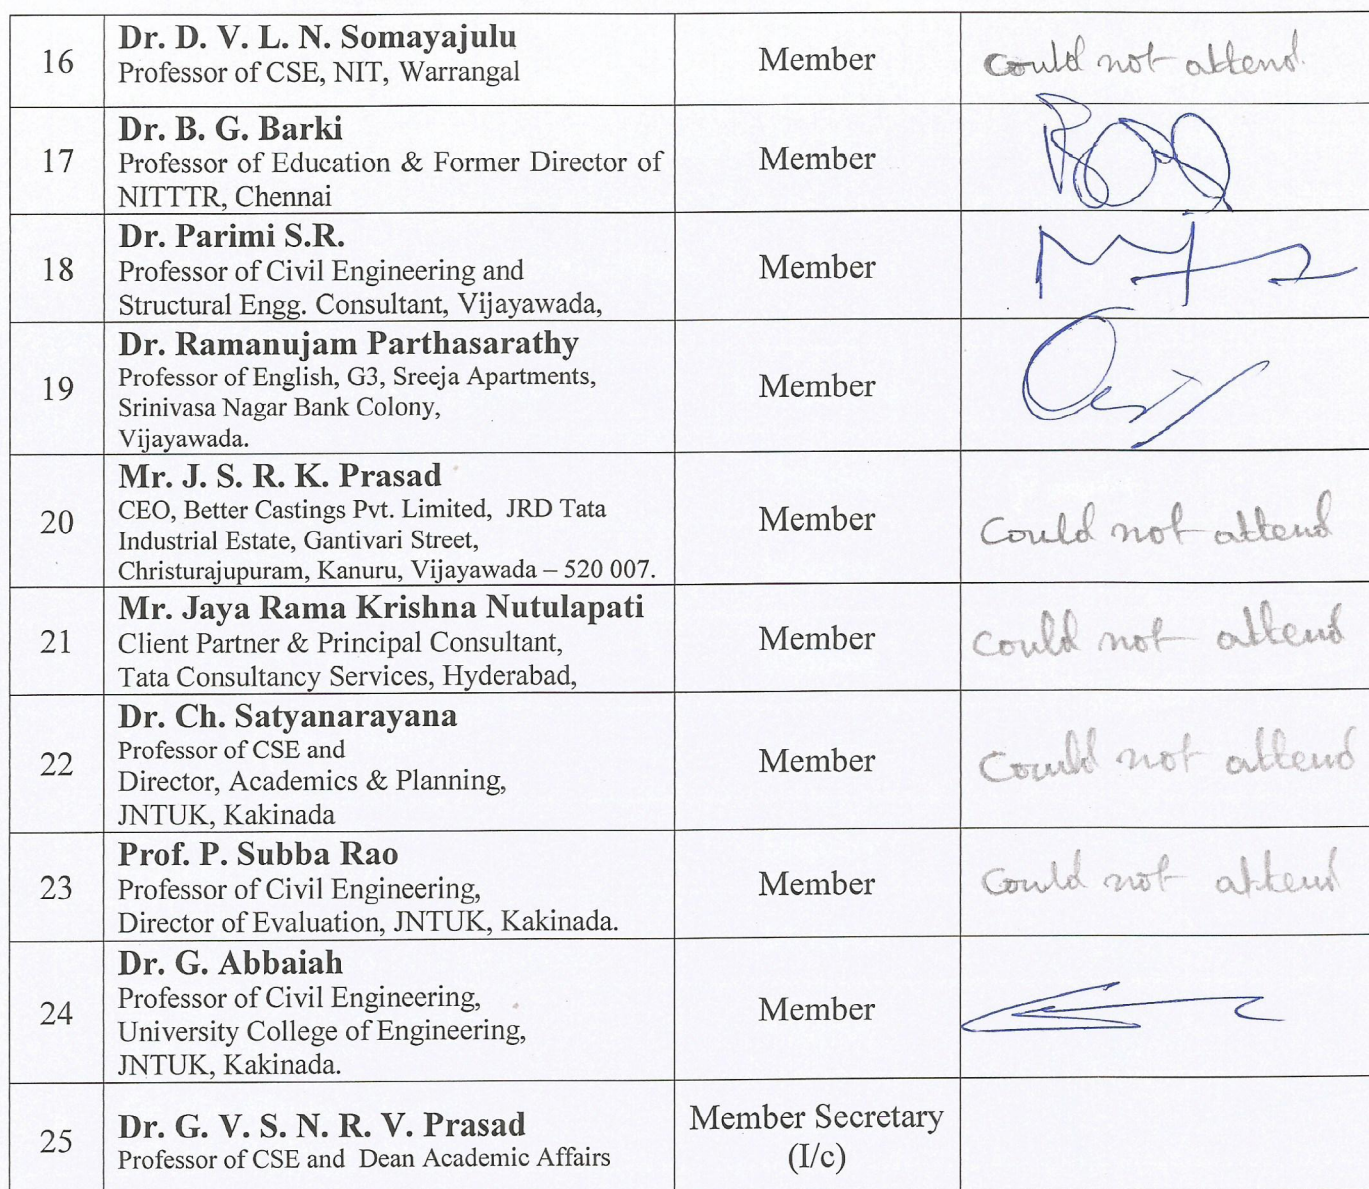 16
Dr. D. V. L. N. Somayajulu
Professor of CSE, NIT, Warrangal
Member
Could not attend
17
Dr. B. G. Barki
Professor of Education & Former Director of
NITTTR, Chennai
Member
18
Dr. Parimi S.R.
Professor of Civil Engineering and
Structural Engg. Consultant, Vijayawada,
Member
19
Dr. Ramanujam Parthasarathy
Professor of English, G3, Sreeja Apartments,
Srinivasa Nagar Bank Colony,
Vijayawada.
Member
20
Mr. J. S. R. K. Prasad
CEO, Better Castings Pvt. Limited, JRD Tata
Industrial Estate, Gantivari Street,
Christurajupuram, Kanuru, Vijayawada – 520 007.
Member
Could not attend
21
Mr. Jaya Rama Krishna Nutulapati
Client Partner & Principal Consultant,
Tata Consultancy Services, Hyderabad,
Member
Could not attend
22
Dr. Ch. Satyanarayana
Professor of CSE and
Director, Academics & Planning,
JNTUK, Kakinada
Member
Could not attend
23
Prof. P. Subba Rao
Professor of Civil Engineering,
Director of Evaluation, JNTUK, Kakinada.
Member
Could not attend
24
Dr. G. Abbaiah
Professor of Civil Engineering,
University College of Engineering,
JNTUK, Kakinada.
Member
25
Dr. G. V. S. N. R. V. Prasad
Professor of CSE and Dean Academic Affairs
Member Secretary
(I/c)